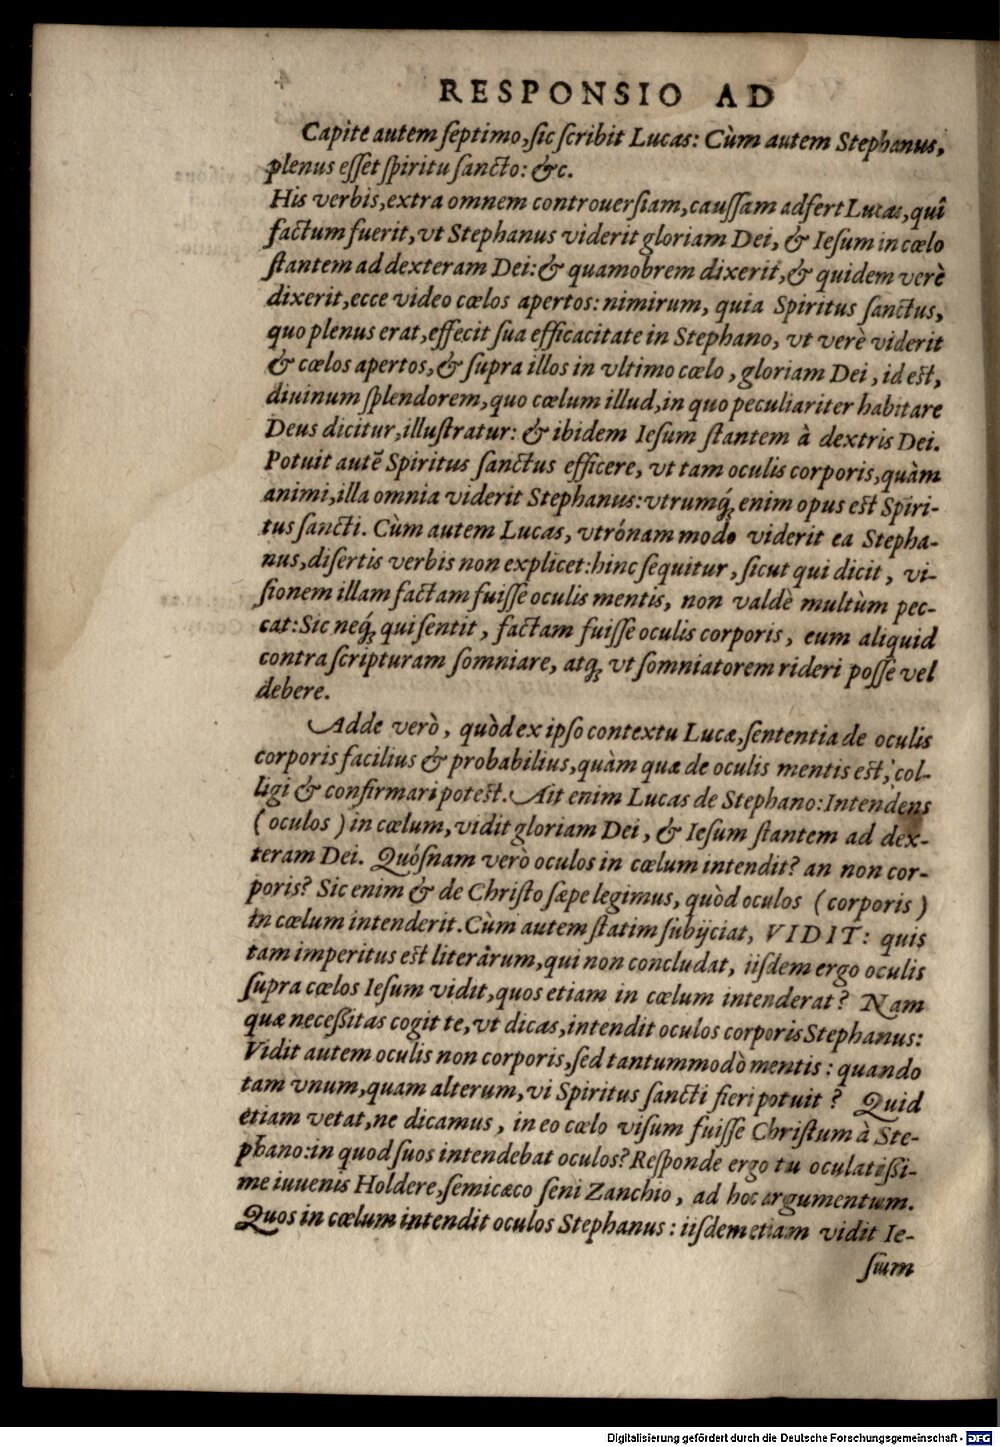 RESPONSIO AD
Capite autem ſeptimo, ſic ſcribit Lucas: Cùm autem Stephanus,
plenus eſſet ſpiritu ſancto: &c.
His verbis, extra omnem controuerſiam, cauſſam adfert Lucas, quî
factum fuerit, vt Stephanus viderit gloriam Dei, & Ieſum in cœlo
ſtantem ad dexteram Dei: & quamobrem dixerit, & quidem verè
dixerit, ecce video cœlos apertos: nimirum, quia Spiritus ſanctus,
quo plenus erat, effecit ſua efficacitate in Stephano, vt verè viderit
& cœlos apertos, & ſupra illos in vltimo cœlo, gloriam Dei, id eſt,
diuinum ſplendorem, quo cœlum illud, in quo peculiariter habitare
Deus dicitur, illuſtratur: & ibidem Ieſum ſtantem à dextris Dei.
Potuit autē Spiritus ſanctus efficere, vt tam oculis corporis, quàm
animi, illa omnia viderit Stephanus: vtrumq́; enim opus eſt Spiri-
tus ſancti. Cùm autem Lucas, vtrónam modo viderit ea Stepha-
nus, diſertis verbis non explicet: hinc ſequitur, ſicut qui dicit, vi-
ſionem illam factam fuiſſe oculis mentis, non valdè multùm pec-
cat: Sic neq́; qui ſentit, factam fuiſſe oculis corporis, eum aliquid
contra ſcripturam ſomniare, atq; vt ſomniatorem rideri poſſe vel
debere.
Adde verò, quòd ex ipſo contextu Lucæ, ſententia de oculis
corporis facilius & probabilius, quàm quæ de oculis mentis eſt, col-
ligi & confirmari poteſt. Ait enim Lucas de Stephano: Intendens
(oculos) in cœlum, vidit gloriam Dei, & Ieſum ſtantem ad dex-
teram Dei. Quóſnam verò oculos in cœlum intendit? an non cor-
poris? Sic enim & de Chriſto ſæpe legimus, quòd oculos (corporis)
in cœlum intenderit. Cùm autem ſtatim ſubijciat, VIDIT: quis
tam imperitus eſt literârum, qui non concludat, iiſdem ergo oculis
ſupra cœlos Ieſum vidit, quos etiam in cœlum intenderat? Nam
quæ neceßitas cogit te, vt dicas, intendit oculos corporis Stephanus:
Vidit autem oculis non corporis, ſed tantummodò mentis: quando
tam vnum, quam alterum, vi Spiritus ſancti fieri potuit? Quid
etiam vetat, ne dicamus, in eo cœlo viſum fuiſſe Chriſtum à Ste-
phano: in quod ſuos intendebat oculos? Reſponde ergo tu oculatißi-
me iuuenis Holdere, ſemicæco ſeni Zanchio, ad hoc argumentum.
Quos in cœlum intendit oculos Stephanus: iiſdem etiam vidit Ie-
ſum
Digitalisierung gefördert durch die Deutsche Forschungsgemeinschaft - DFG